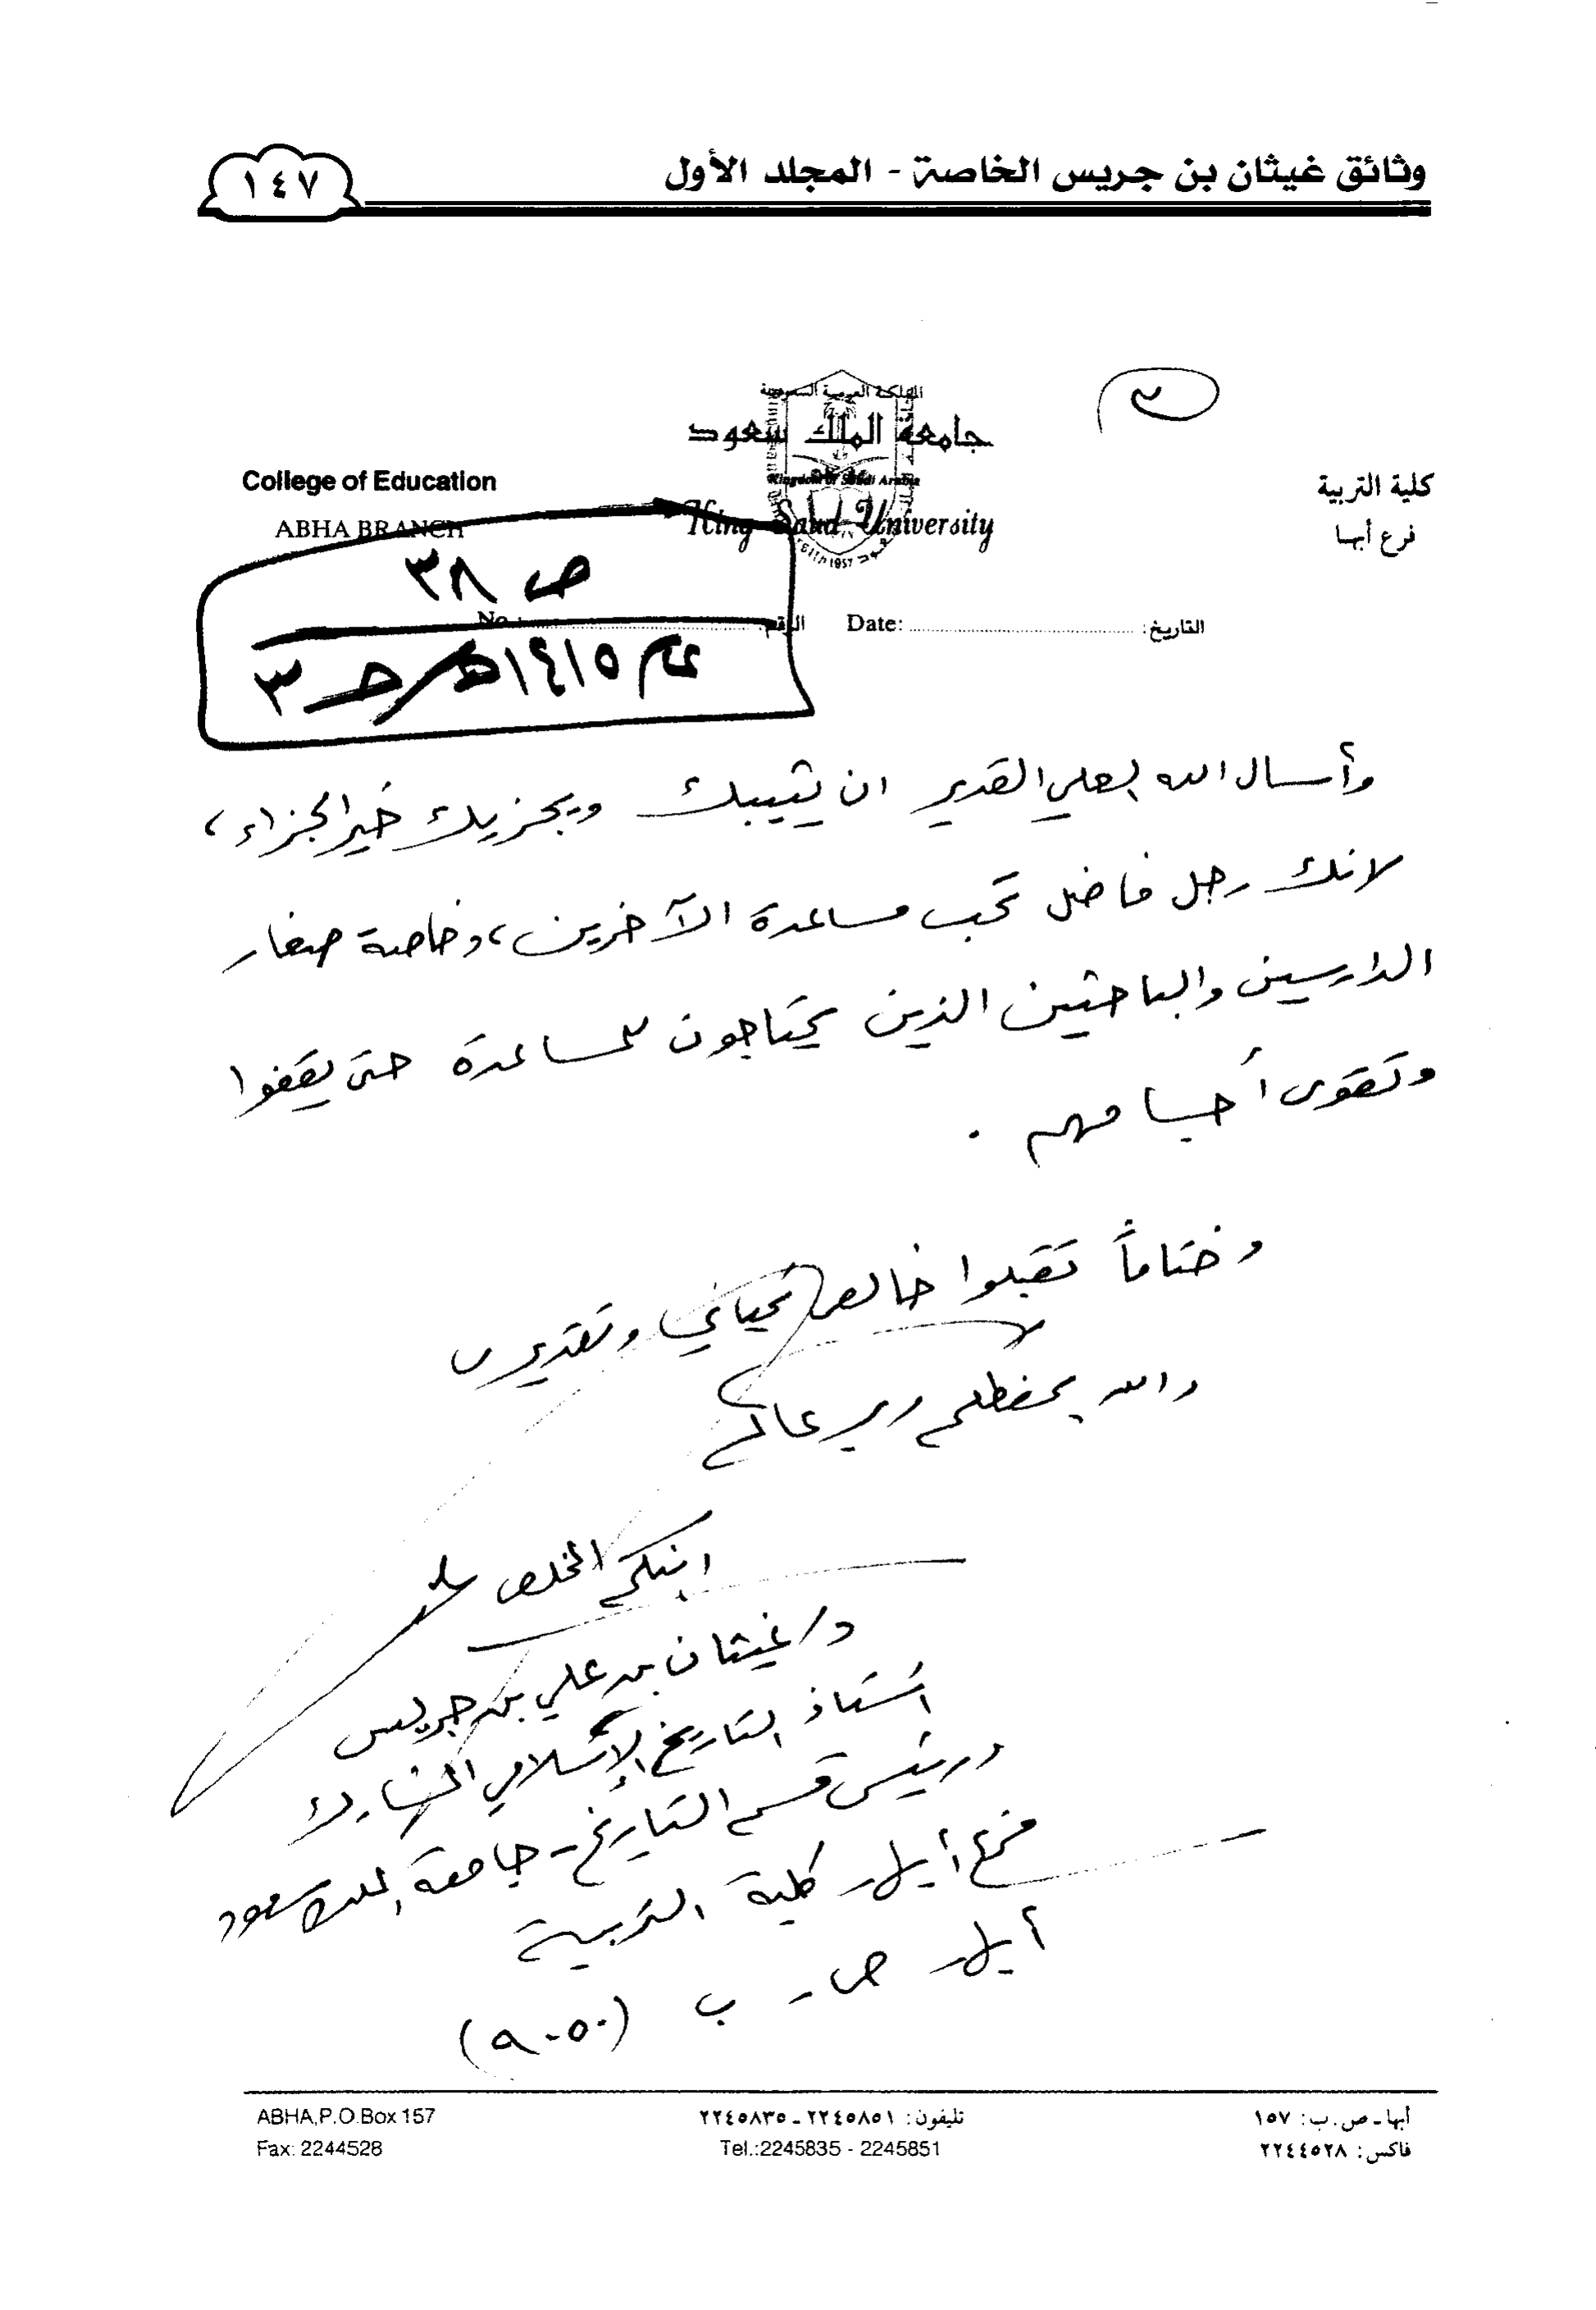 وثائق غيثان بن جريس الخاصة - المجلد الأول
١٤٧
المملكة العربية السعودية
جامعة الملك سعود
Kingdom of Saudi Arabia
King Saud University
1957
College of Education
ABHA BRANCH
كلية التربية
فرع أبها
ص ٣٨
No.: الرقم
Date: التاريخ:
عام ١٤١٥هـ ج ٣
وأسال الله العلي القدير ان يثيبك ويجزيك خير الجزاء،
لانك رجل فاضل تحب مساعدة الآخرين، وخاصة صغار
الدارسين والباحثين الذين يحتاجون للمساعدة حتى يقفوا
وتقوى أجسامهم .
وختاماً تقبلوا خالص تحياتي وتقديري
والله يحفظكم ويرعاكم
ابنكم المخلص
د/ غيثان بن علي بن جريس
استاذ التاريخ الإسلامي المشارك
ورئيس قسم التاريخ - جامعة الملك سعود
فرع أبها - كلية التربية
أبها - ص . ب (٩٠٥٠)
ABHA,P.O.Box 157
Fax: 2244528
تليفون: ٢٢٤٥٨٥١ - ٢٢٤٥٨٣٥
Tel.:2245835 - 2245851
أبها - ص.ب: ١٥٧
فاكس: ٢٢٤٤٥٢٨